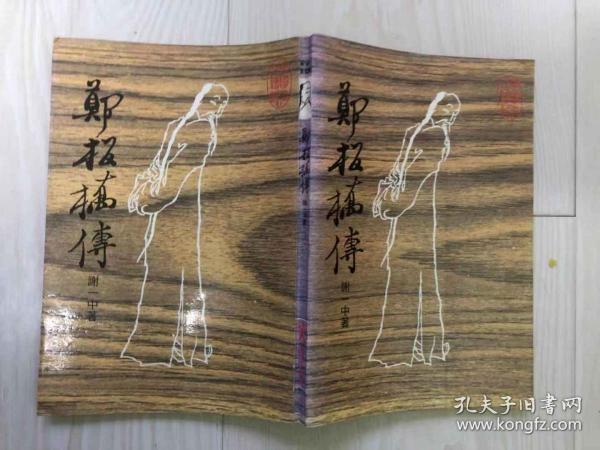 鄭板橋傳
謝一中著
鄭板橋傳
謝一中著
孔夫子旧书网
www.kongfz.com